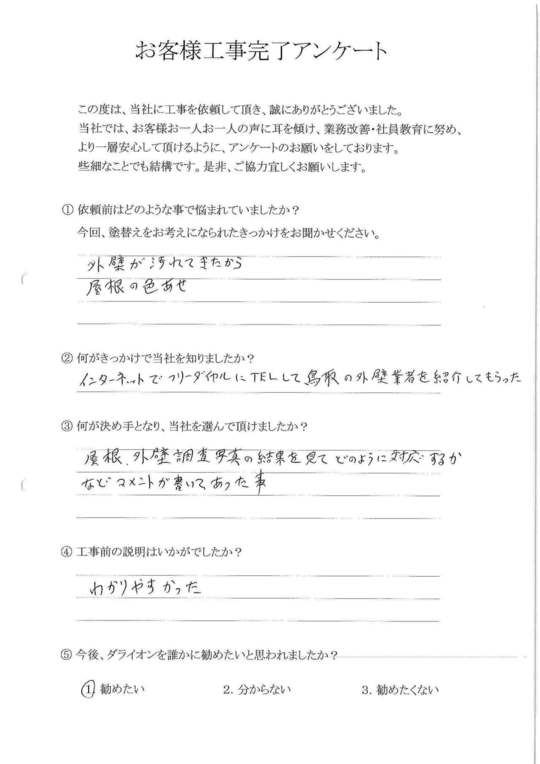 お客様工事完了アンケート
この度は、当社に工事を依頼して頂き、誠にありがとうございました。
当社では、お客様お一人お一人の声に耳を傾け、業務改善・社員教育に努め、
より一層安心して頂けるように、アンケートのお願いをしております。
些細なことでも結構です。是非、ご協力宜しくお願いします。
① 依頼前はどのような事で悩まれていましたか？
今回、塗替えをお考えになられたきっかけをお聞かせください。
外壁が汚れてきたから
屋根の色あせ
② 何がきっかけで当社を知りましたか？
インターネットでフリーダイヤルにTELして鳥取の外壁業者を紹介してもらった
③ 何が決め手となり、当社を選んで頂けましたか？
屋根、外壁調査写真の結果を見てどのように対応するか
などコメントが書いてあった事
④ 工事前の説明はいかがでしたか？
わかりやすかった
⑤ 今後、ダライオンを誰かに勧めたいと思われましたか？
1. 勧めたい 2. 分からない 3. 勧めたくない